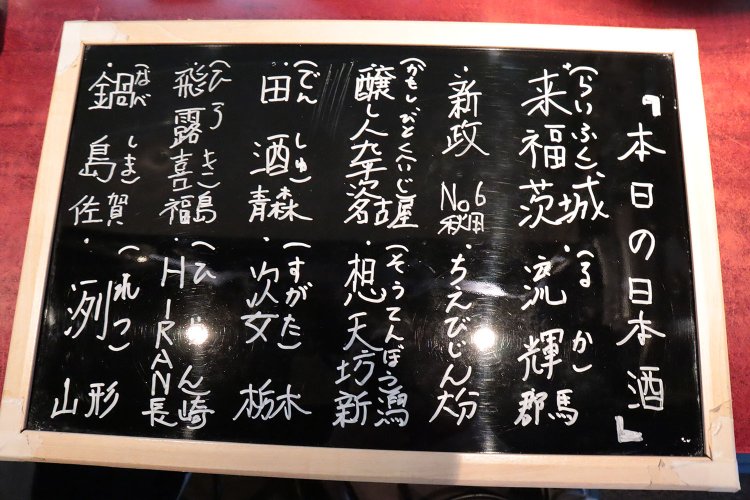 『本日の日本酒』
・来福 茨城
(らいふく)
・流輝 群馬
(るか)
・新政 No6 秋田
・ちえびじん 大分
・醸し人九平次 名古屋
(かもしびとくへいじ)
・想天坊 新潟
(そうてんぼう)
・田酒 青森
(でんしゅ)
・姿 栃木
(すがた)
・飛露喜 福島
(ひろき)
・HIRAN 長崎
(ひらん)
・鍋島 佐賀
(なべしま)
・洌 山形
(れつ)